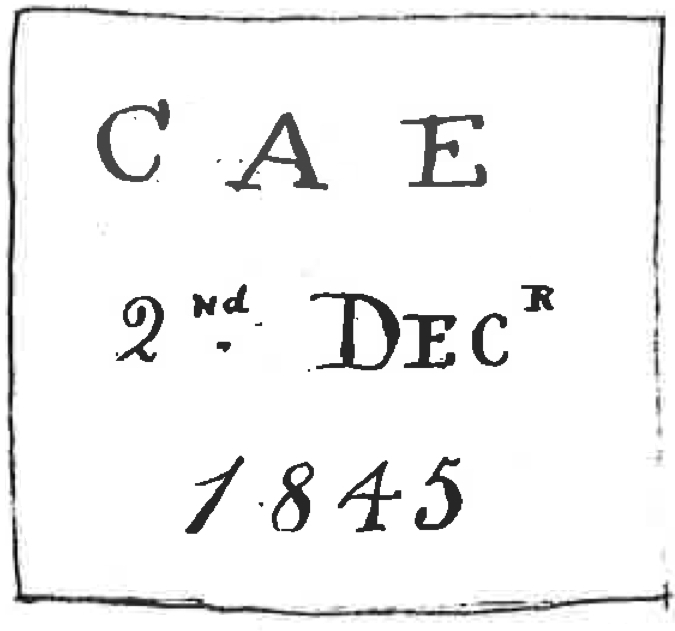 C A E
2ᴺᵈ. DECᴿ
1845